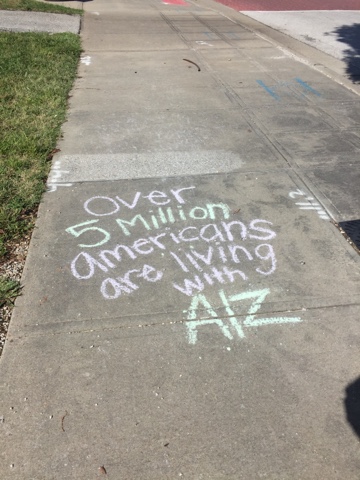 Over
5 Million
americans
are living
with
A/Z